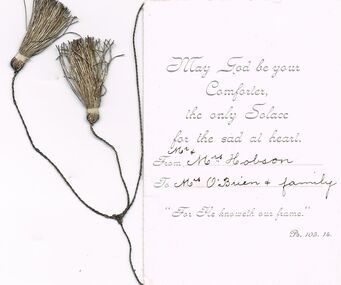 May God be your
Comforter,
the only Solace
for the sad at heart.
Mr &
From Mrs Hobson
To Mrs O'Brien & family
"For He knoweth our frame."
Ps. 103. 14.